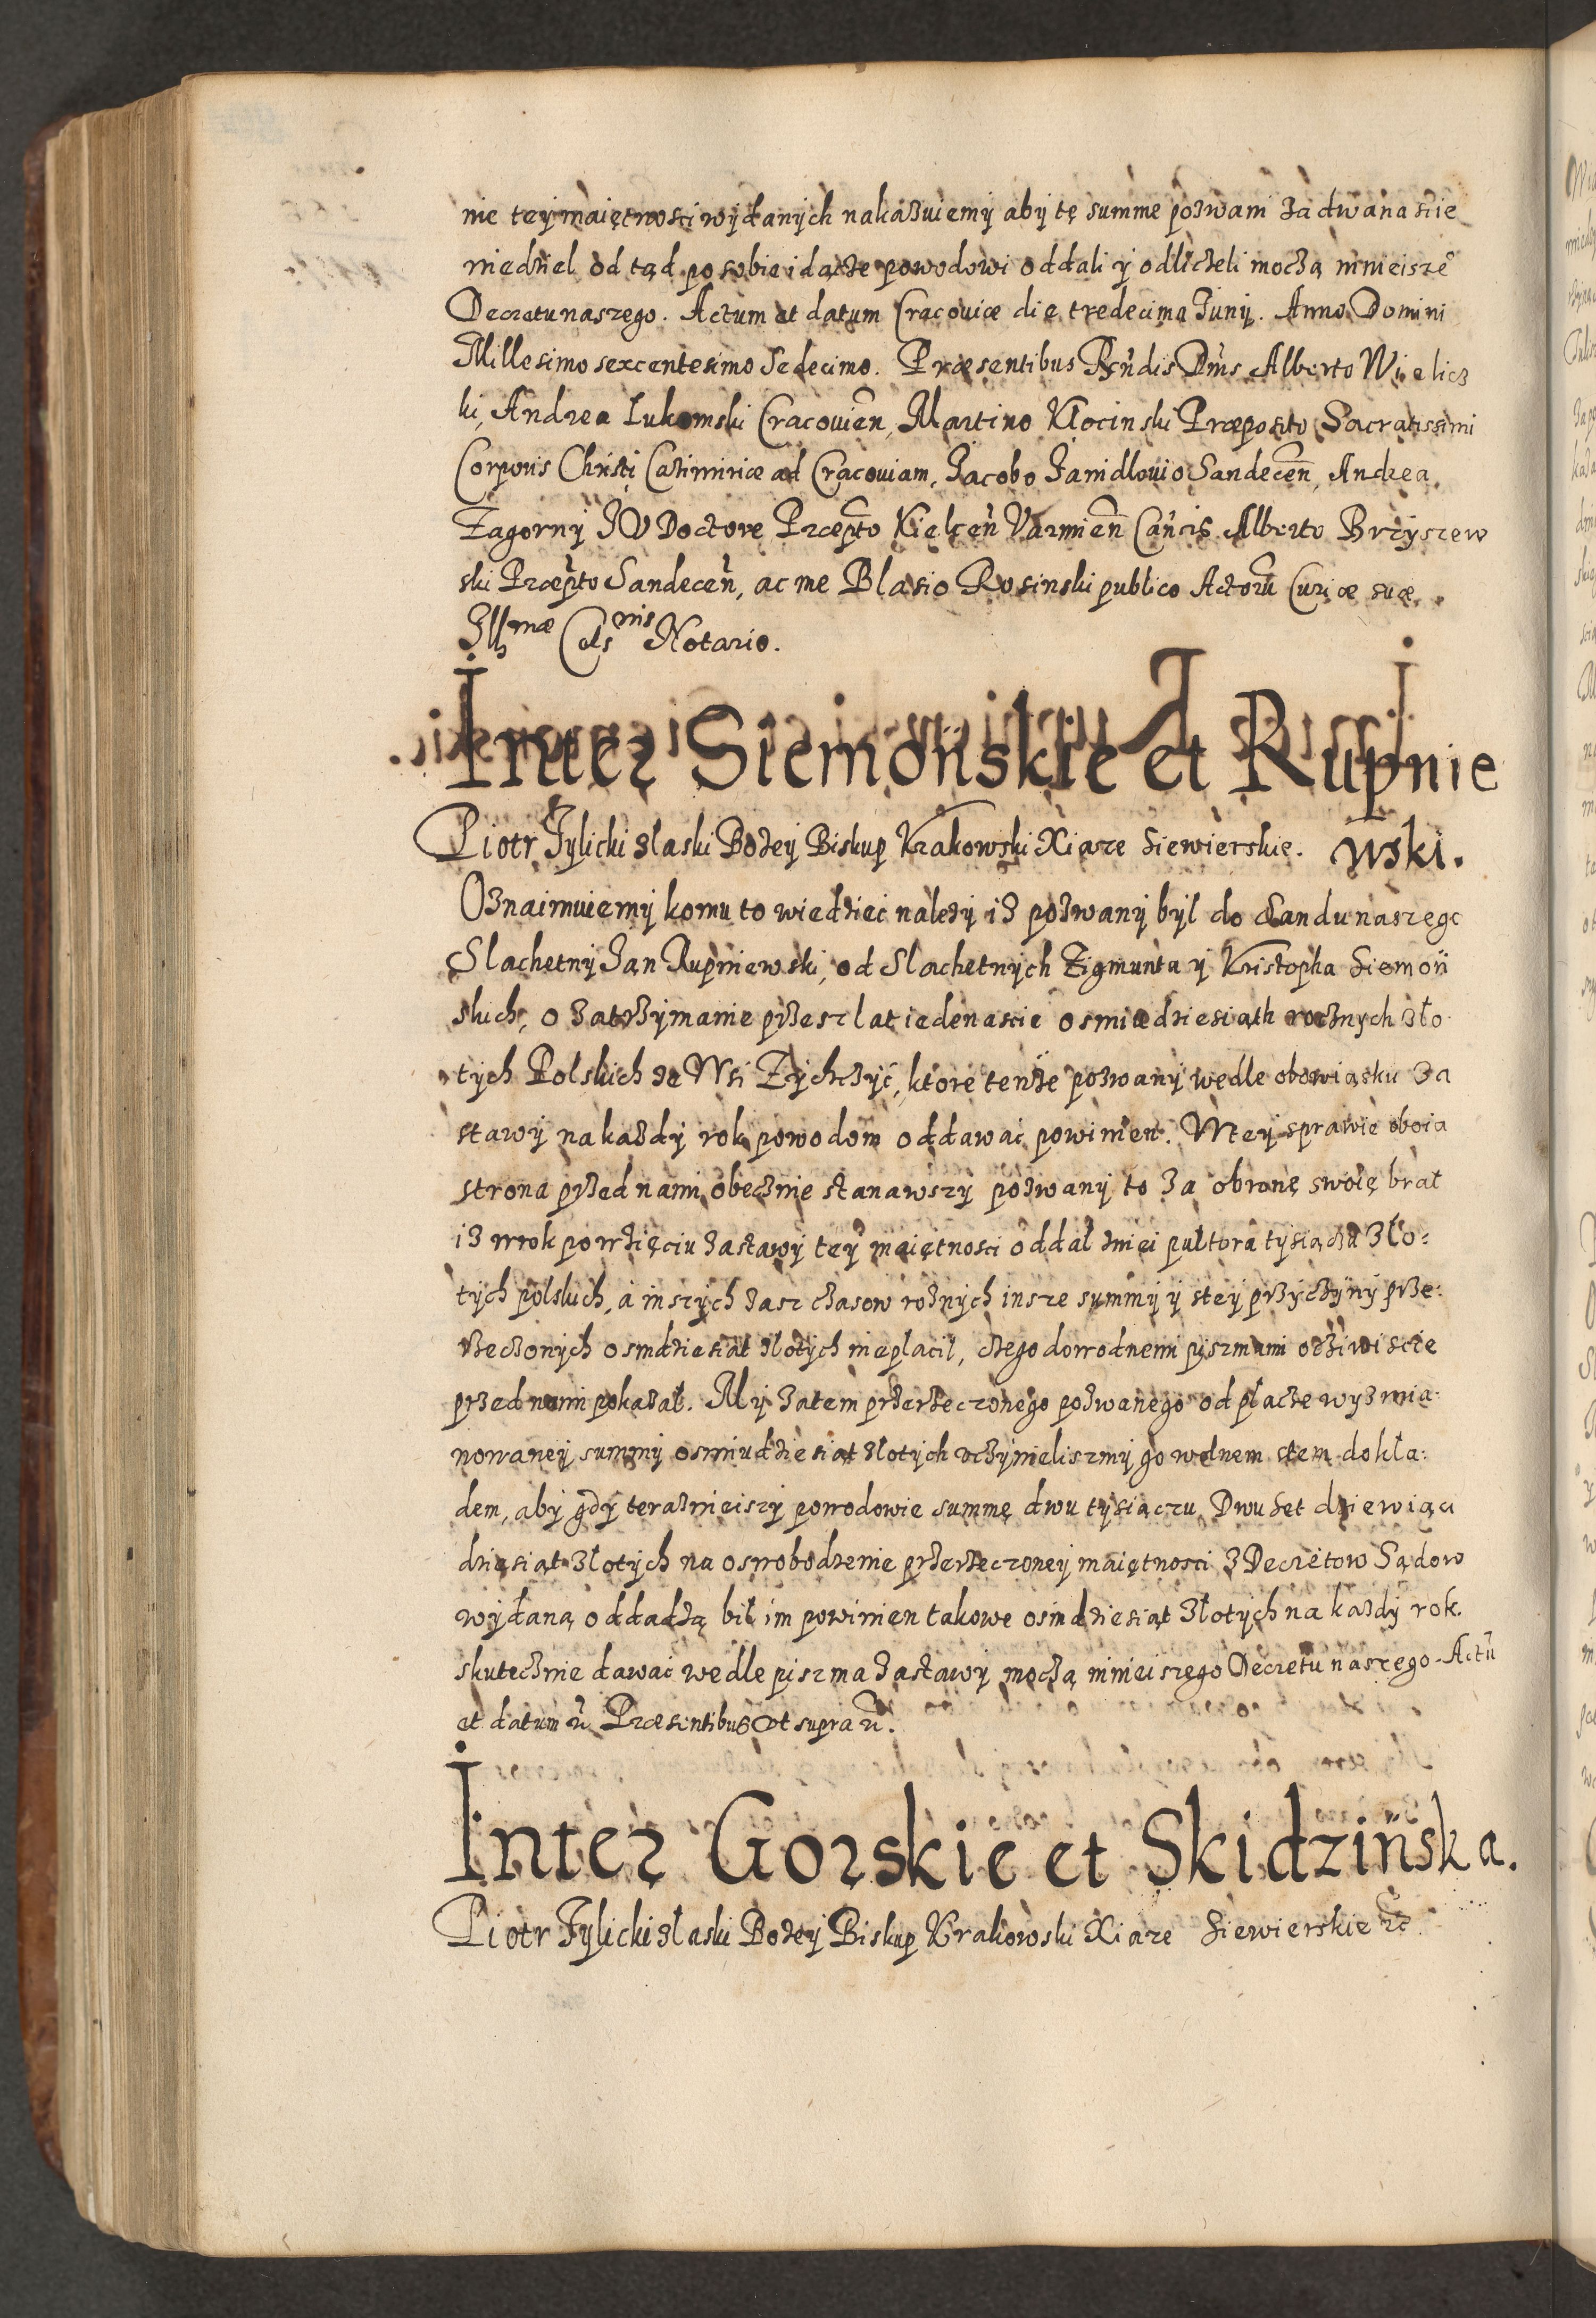 nie tey maiętnosci wydanych nakazuiemy aby tę summe pozwani za dwanascie
niedziel od tąd po sobie idącze powodowi oddali y odliczeli moczą ninieisze
Decretu naszego. Actum et datum Cracoviæ die tredecima Junij. Anno Domini
Millesimo sexcentesimo Sedecimo. Præsentibus Rñdis Dñis Alberto Wielicz
ki, Andrea Lukomski Cracovieñ, Martino Klocinski Præposito Sacratissimi
Corporis Christi Casimiriæ ad Cracoviam, Jacobo Janidlovio Sandeceñ, Andrea
Zagorny JV Doctore Præpto Kielceñ Varmieñ Cañcis Alberto Brzyszew
ski Præpto Sandeceñ, ac me Blasio Rosinski publico Actorũ Curiæ suæ
Illmæ Celsnis Notario.
Inter Siemońskie et Rupnie
wski.
Piotr Tylicki z laski Bozey Biskup Krakowski Xiaze Siewierskie.
Oznaimuiemy komu to wiedziec nalezy iz pozwany byl do Sandu naszego
Slachetny Jan Rupniewski, od Slachetnych Zigmunta y Kristopha Siemoń
skich, o zatrzymanie przesz lat iedenascie osmiedziesiąth rocznych zlo
tych Polskich ze Wsi Zychczyć, ktore tenze pozwany wedle obowiąsku za
stawy na kazdy rok powodom oddawac powinien. W tey sprawie oboia
strona przed nami obecznie stanawszy pozwany to za obronę swoię brał
iz w rok po wzięciu zastawy tey maiętnosci oddał zniei pułtora tysiącza zło:
tych polskich, a inszych zasz czasow roznych insze summy y stey przyczyny prze:
rzeczonych osmdziesiat zlotych nieplacil, czego dowodnemi pyszmami ocziwiscie
przed nami pokazał. My zatem przerzeczonego pozwanego od płacze wyzmia:
nowaney summy osmiudziesiąt zlotych uczynieliszmy go wolnem stem dokła:
dem, aby gdy teraznieiszy powodowie summę dwu tysiączu Dwuset dziewiąci
dziesiąt złotych na oswobodzenie przerzeczoney maiętnosci z Decretow Sądow
wydaną oddadzą bił im powinien takowe osmdziesiąt złotych na kazdy rok
skutecznie dawac wedle piszma zastawy moczą ninieiszego Decretu naszego. Actũ
et datum &c. Præsentibus ut supra &c.
Inter Gorskie et Skidzińska.
Piotr Tylicki z łaski Bozey Biskup Krakowski Xiaze Siewierskie &c